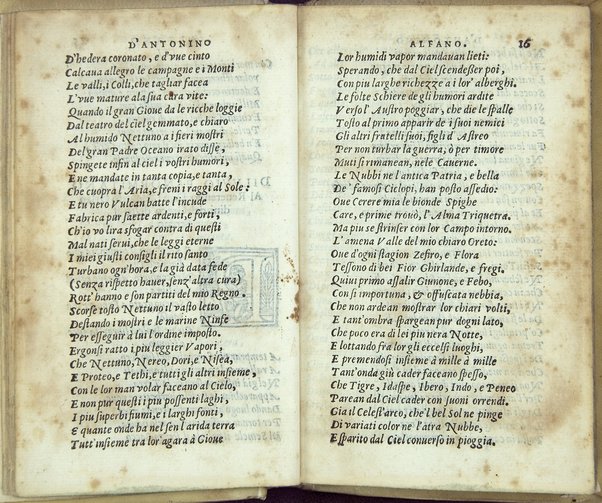 D'ANTONINO
D'hedera coronato, e d'vue cinto
Calcaua allegro le campagne e i Monti
Le valli, i Colli, che tagliar facea
L'vue mature ala sua cara vite:
Quando il gran Gioue da le ricche loggie
Dal teatro del ciel gemmato, e chiaro
Al humido Nettuno a i fieri mostri
Del gran Padre Oceano irato disse,
Spingete infin al ciel i vostri humori,
E ne mandate in tanta copia, e tanta,
Che cuopra l'Aria, e freni i raggi al Sole:
E tu nero Vulcan batte l'incude
Fabrica pur saette ardenti, e forti,
Ch'io vo lira sfogar contra di questi
Mal nati serui, che le leggi eterne
I miei giusti consigli il rito santo
Turbano ogn'hora, e la già data fede
(Senza rispetto hauer, senz'altra cura)
Rott' hanno e son partiti del mio Regno.
Scorse tosto Nettuno il vasto letto
Destando i mostri e le marine Ninfe
Per esseguir à lui l'ordine imposto.
Ergonsi ratto i piu leggier Vapori,
Che Nettuno, Nereo, Dori, e Nisea,
E Proteo, e Tethi, e tutti gli altri insieme,
Con le lor man volar faceano al Cielo,
E non pur questi i piu possenti laghi,
I piu superbi fiumi, e i larghi fonti,
E quante onde ha nel sen l'arida terra
Tutt'insieme tra lor' agara à Gioue
ALFANO. 16
Lor humidi vapor mandauan lieti:
Sperando, che dal Ciel scendesser poi,
Con piu larghe richezze a i lor' alberghi.
Le folte Schiere de gli humori ardite
Verso l'Austro poggiar, che die le spalle
Tosto al primo apparir de i suoi nemici
Gli altri fratelli suoi, figli d'Astreo
Per non turbar la guerra, ò per timore
Muti si rimanean, nele Cauerne.
Le Nubbi ne l'antica Patria, e bella
De' famosi Ciclopi, han posto assedio:
Oue Cerere mia le bionde Spighe
Care, e prime trouò, l'Alma Triquetra.
Ma piu se strinser con lor Campo intorno.
L'amena Valle del mio chiaro Oreto:
Oue d'ogni stagion Zefiro, e Flora
Tessono di bei Fior Ghirlande, e fregi.
Quiui primo assalir Giunone, e Febo,
Con sì importuna, & offuscata nebbia,
Che non ardean mostrar lor chiari volti,
E tant'ombra spargean pur dogni lato,
Che poco era di lei piu nera Notte,
E lottando fra lor gli eccelsi luoghi,
E premendosi insieme à mille à mille
Tant'onda giù cader faceano spesso,
Che Tigre, Idaspe, Ibero, Indo, e Peneo
Parean dal Ciel cader con suoni orrendi.
Gia il Celest'arco, che'l bel Sol ne pinge
Di variati color ne l'atra Nubbe,
Esparito dal Ciel conuerso in pioggia.